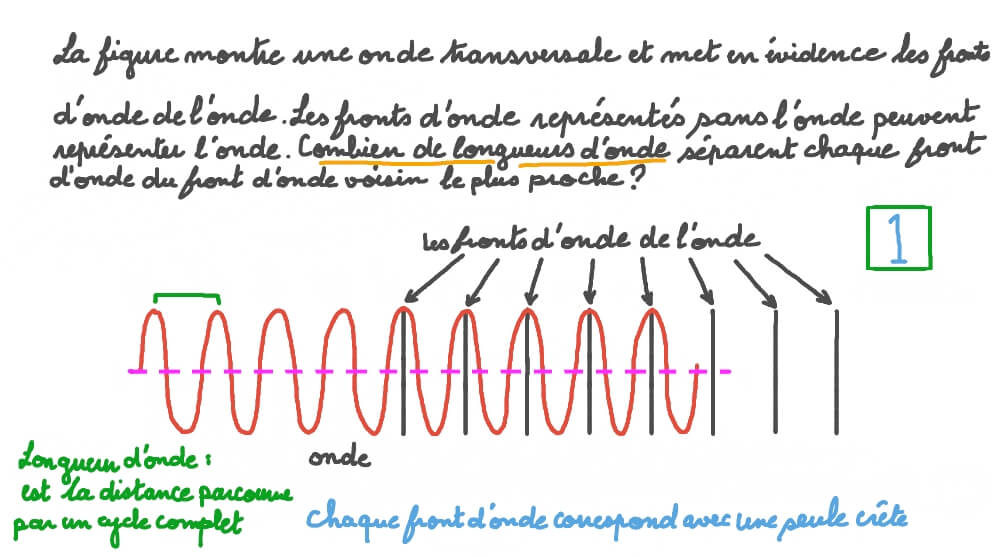 La figure montre une onde transversale et met en évidence les fronts
d'onde de l'onde. Les fronts d'onde représentés sans l'onde peuvent
représenter l'onde. Combien de longueurs d'onde séparent chaque front
d'onde du front d'onde voisin le plus proche ?
les fronts d'onde de l'onde
1
Longueur d'onde :
est la distance parcourue
par un cycle complet
onde
Chaque front d'onde correspond avec une seule crête